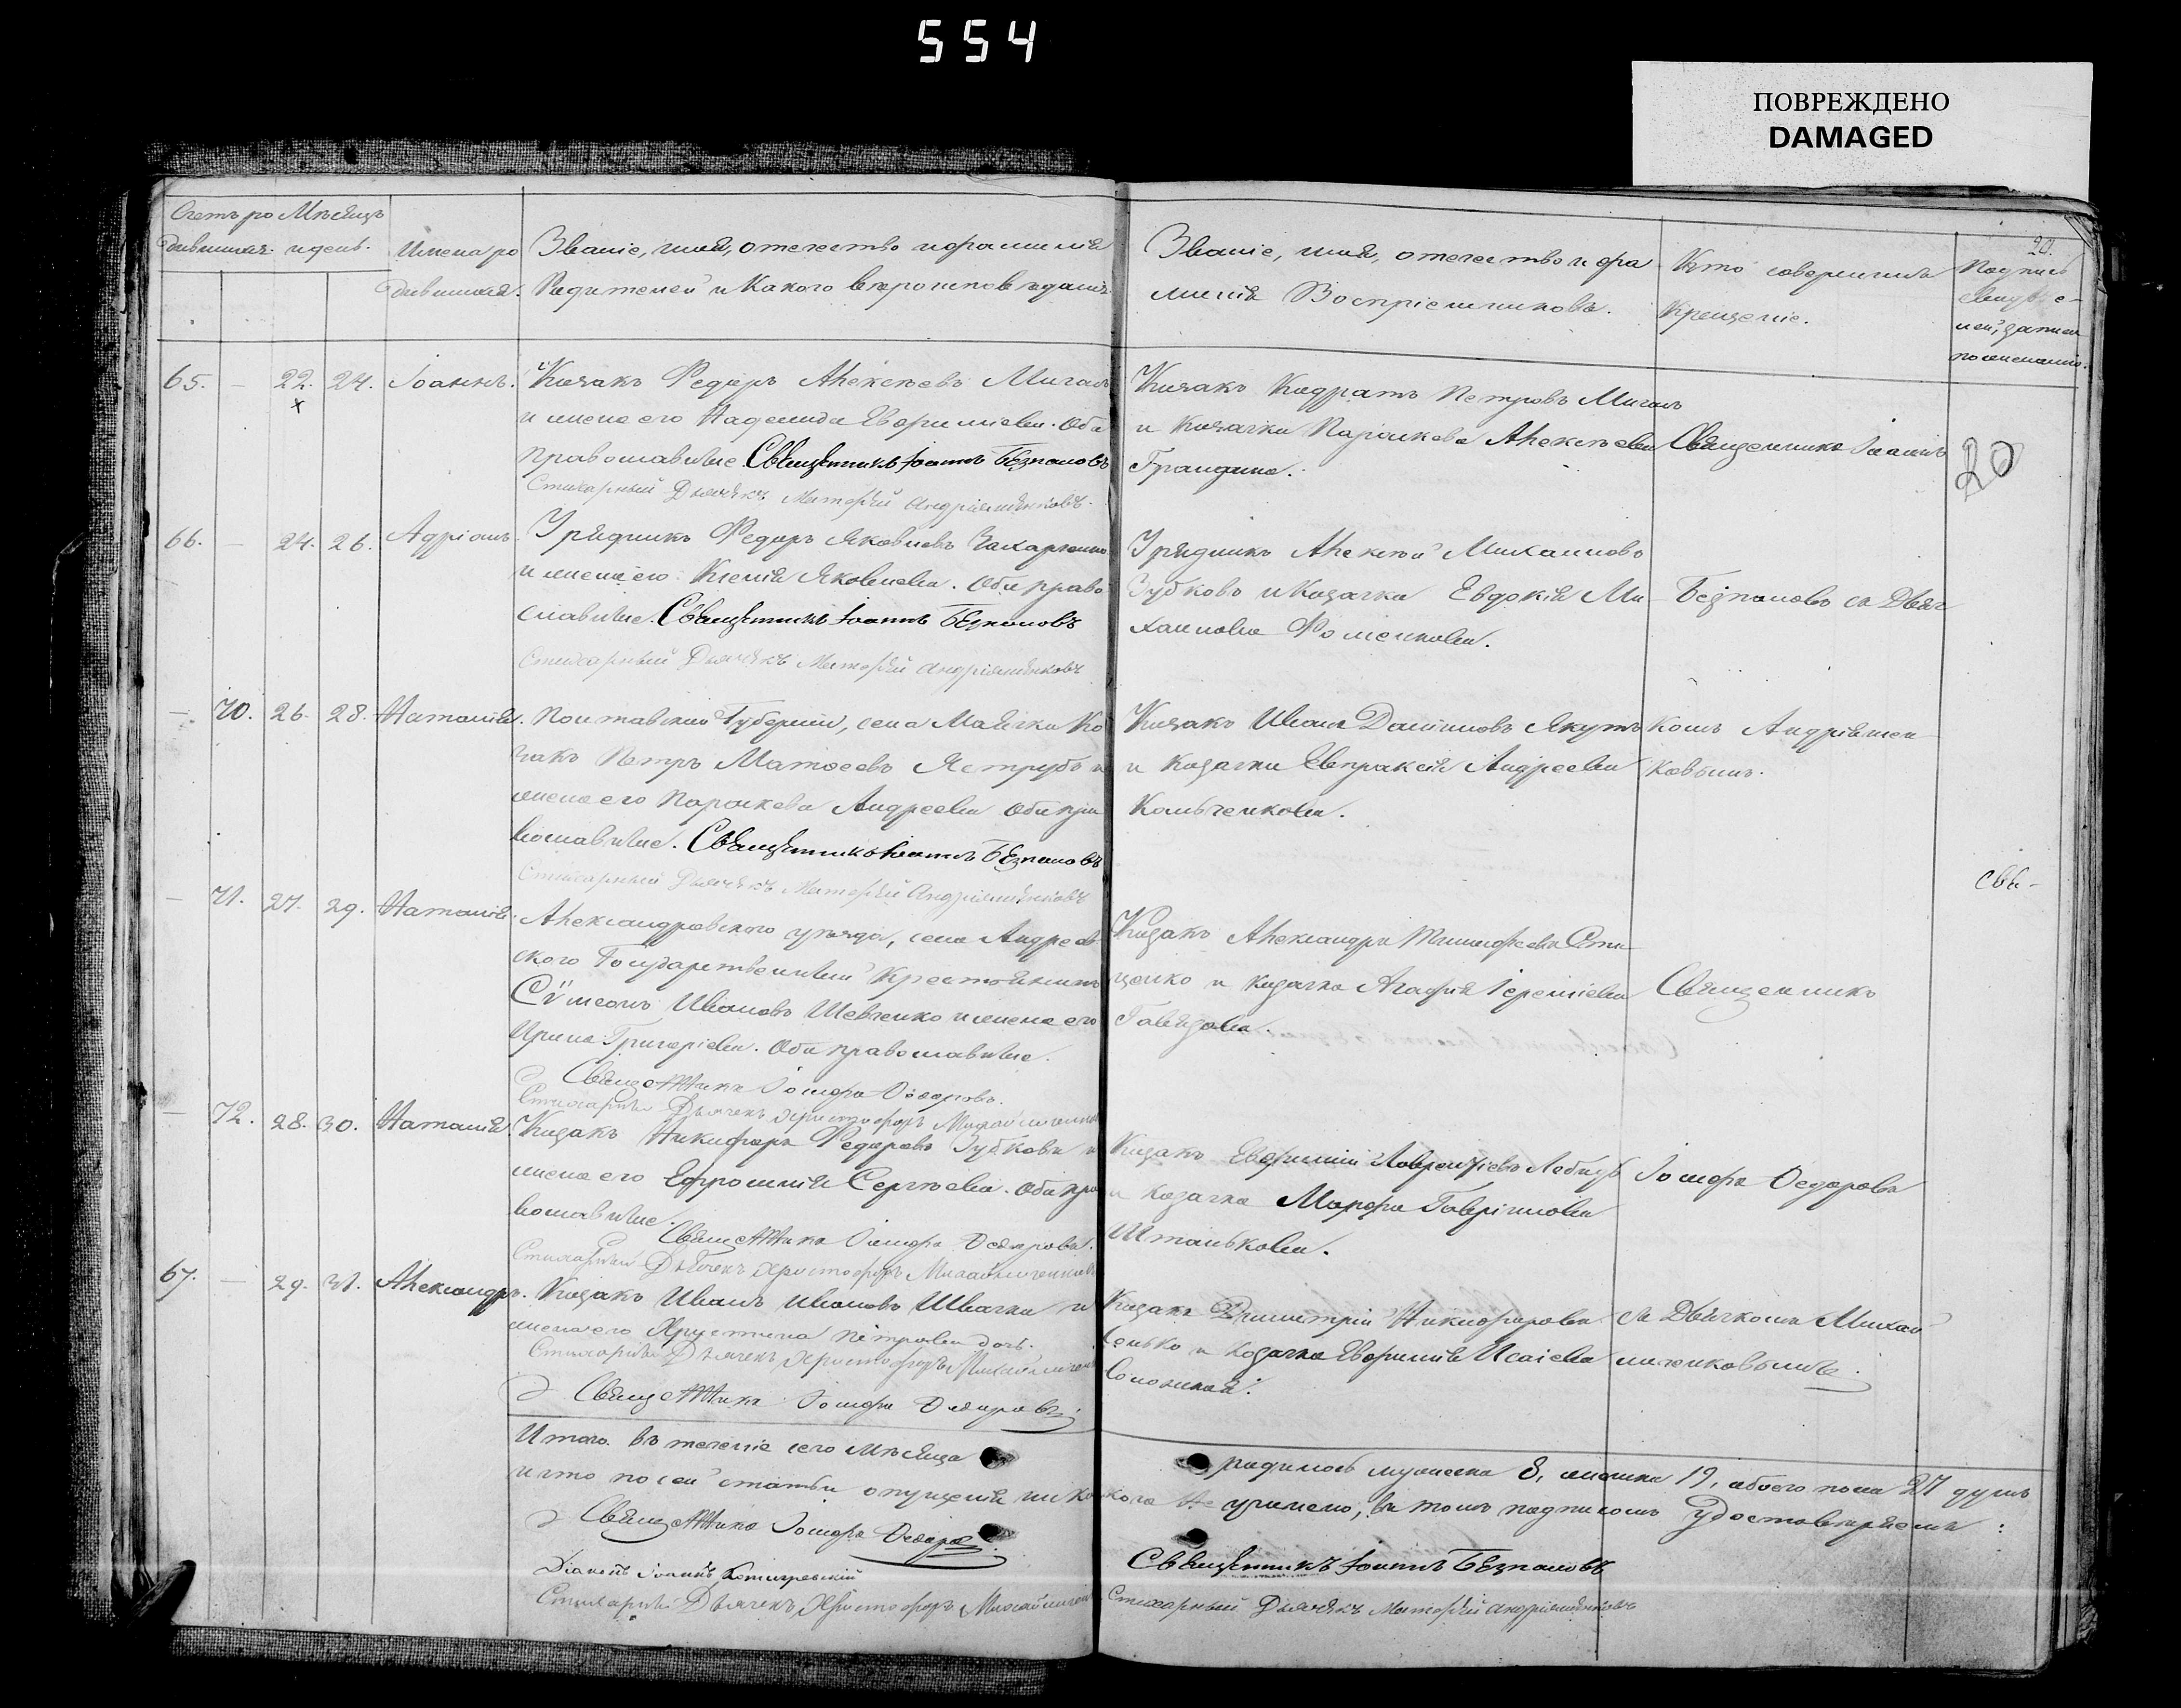 554
ПОВРЕЖДЕНО
DAMAGED
Счетъ ро Мѣсяцъ
дившихся. и день. Имена ро
дившихся.
Званіе, имя, отечество и фамилія
Родителей и Какого вѣроисповѣданія
Званіе, имя, отечество и фа
милія Воспріемниковъ.
Кто совершилъ
Крещеніе.
20.
Подпись
свидѣте-
лей, записи
по желанію.
65. – 22. 24. Іоаннъ. Козакъ Федоръ Алексѣевъ Мигаль
и жена его Надежда Евфиміева. Оба
православные. Священникъ Іоаннъ Безпаловъ
Стихарный Дьячекъ Матфѣй Андріяшенковъ.
Козакъ Кодратъ Петровъ Мигаль
и Козачка Параскева Алексѣева
Священникъ Іоаннъ
20
66. – 24. 26. Адріанъ. Урядникъ Федоръ Яковлевъ Захарченко
и жена его Ксенія Яковлева. Оба право
славные. Священникъ Іоаннъ Безпаловъ
Стихарный Дьячекъ Матфѣй Андріяшенковъ
Урядникъ Алексѣй Михаиловъ
Зубковъ и Козачка Евдокія Ми
хаилова Фоменкова.
Безпаловъ съ Дьяч
– 70. 26. 28. Наталія. Полтавской Губерніи, села Маячки Ко
закъ Петръ Матѳеевъ Яструбъ и
жена его Параскева Андреева Оба пра
вославные. Священникъ Іоаннъ Безпаловъ
Стихарный Дьячекъ Матфѣй Андріяшенковъ
Козакъ Иванъ Даниловъ Якутъ
и Козачка Евпраксія Андреева
Кольченкова.
комъ Андріяшен
ковымъ.
– 71. 27. 29. Наталія. Александровскаго уѣзда, села Андреев
скаго Государственный Крестьянинъ
Сѵмеонъ Ивановъ Шевченко и жена его
Ирина Григоріева. Оба православные.
Священникъ Іосифъ Ѳедоровъ.
Стихарный Дьячекъ Христофоръ Михайличенковъ
Козакъ Александръ Тимофеевъ Сти
ценко и козачка Агафія Іереміева
Священникъ
Свя-
– 72. 28. 30. Наталія. Козакъ Никифоръ Федоровъ Зубковъ и
жена его Ефросинія Сергѣева. Оба пра
вославные.
Священникъ Іосифъ Ѳедоровъ.
Стихарный Дьячекъ Христофоръ Михайличенковъ
Козакъ Евфимій Лаврентіевъ Лебидь
и козачка Марфа Гавріилова
Штанькова.
Іосифъ Ѳедоровъ
67. – 29. 31. Александръ. Козакъ Иванъ Ивановъ Швачка и
жена его Христина Петрова
Стихарный Дьячекъ Христофоръ Михайличенковъ
Священникъ Іосифъ Ѳедоровъ
Козакъ Димитрій Никифоровъ
и козачка Евфимія Исаіева
съ Дьячкомъ Михай
личенковымъ.
Итого въ теченіе сего мѣсяца родилось мужеска 8, женска 19, обоего пола 27 душъ
и что по сей статьи опущенія никакого не учинено, въ томъ подписомъ Удостовѣряемъ:
Священникъ Іосифъ Ѳедоровъ.
Діаконъ Іоаннъ
Стихарный Дьячекъ Христофоръ Михайличенковъ
Священникъ Іоаннъ Безпаловъ
Стихарный Дьячекъ Матфѣй Андріяшенковъ